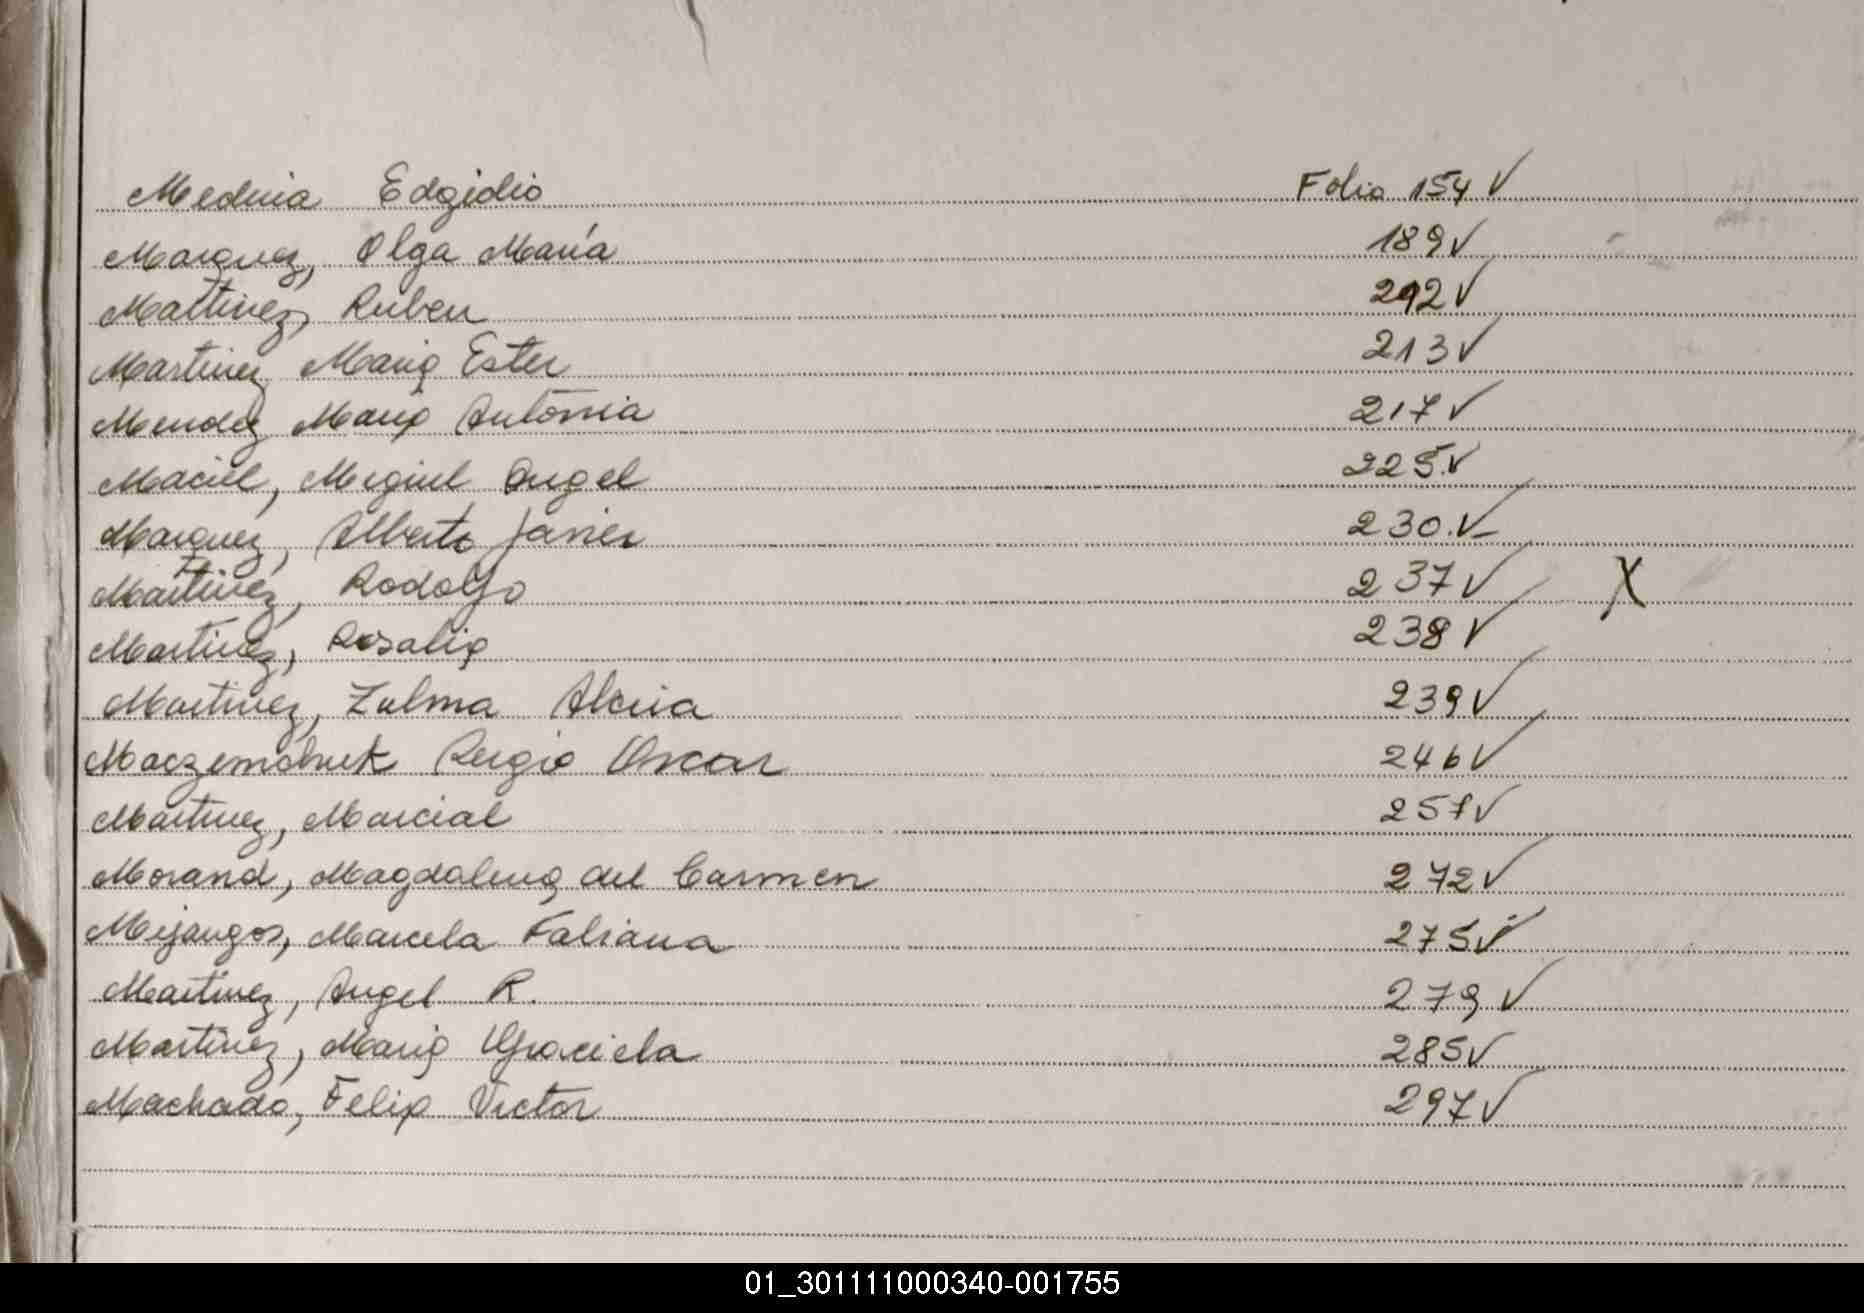 Medina Edgidio Folio 154 ✓
Marquez, Olga María 189 ✓
Martinez, Ruben 212 ✓
Martinez Maria Ester 213 ✓
Mendez Maria Antonia 217 ✓
Maciel, Miguel Angel 225 ✓
Marquez, Alberto Javier 230. ✓
Martinez, Rodolfo 237 ✓ X
Martinez, Rosalia 238 ✓
Martinez, Zulma Alcira 239 ✓
Sergio Oscar 246 ✓
Martinez, Marcial 257 ✓
Morand, Magdalena del Carmen 272 ✓
Mijangos, Marcela Fabiana 275 ✓
Martinez, Angel R. 279 ✓
Martinez, Maria Graciela 285 ✓
Machado, Felix Victor 297 ✓
01_301111000340-001755